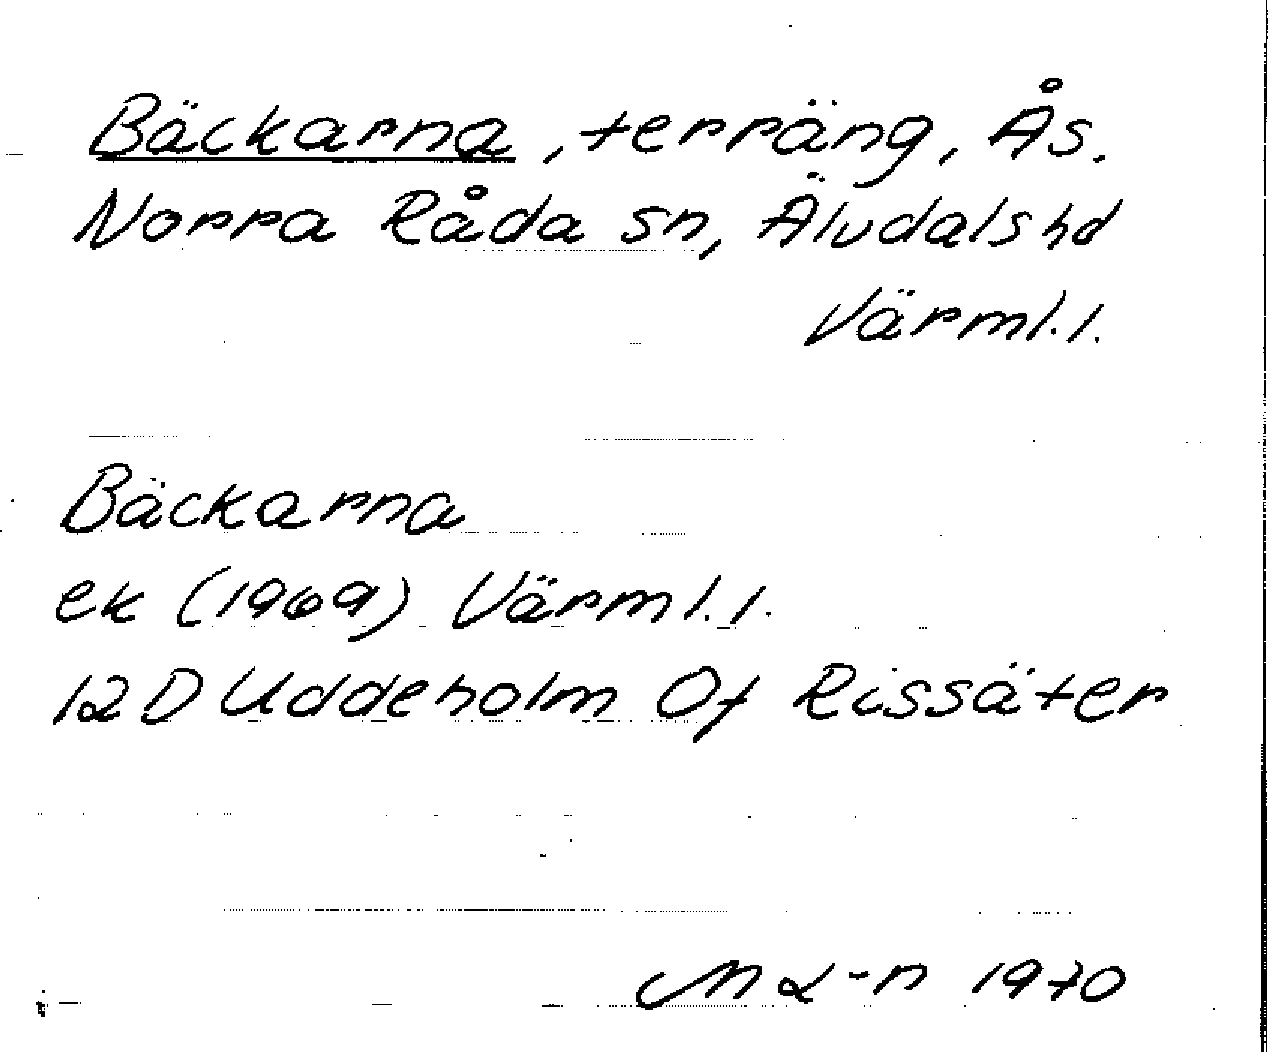 Bäckarna, terräng, Ås.
Norra Råda sn, Älvdals hd
Värml. l.
Bäckarna
ek (1969) Värml. l.
12 D Uddeholm Of Rissäter
1970